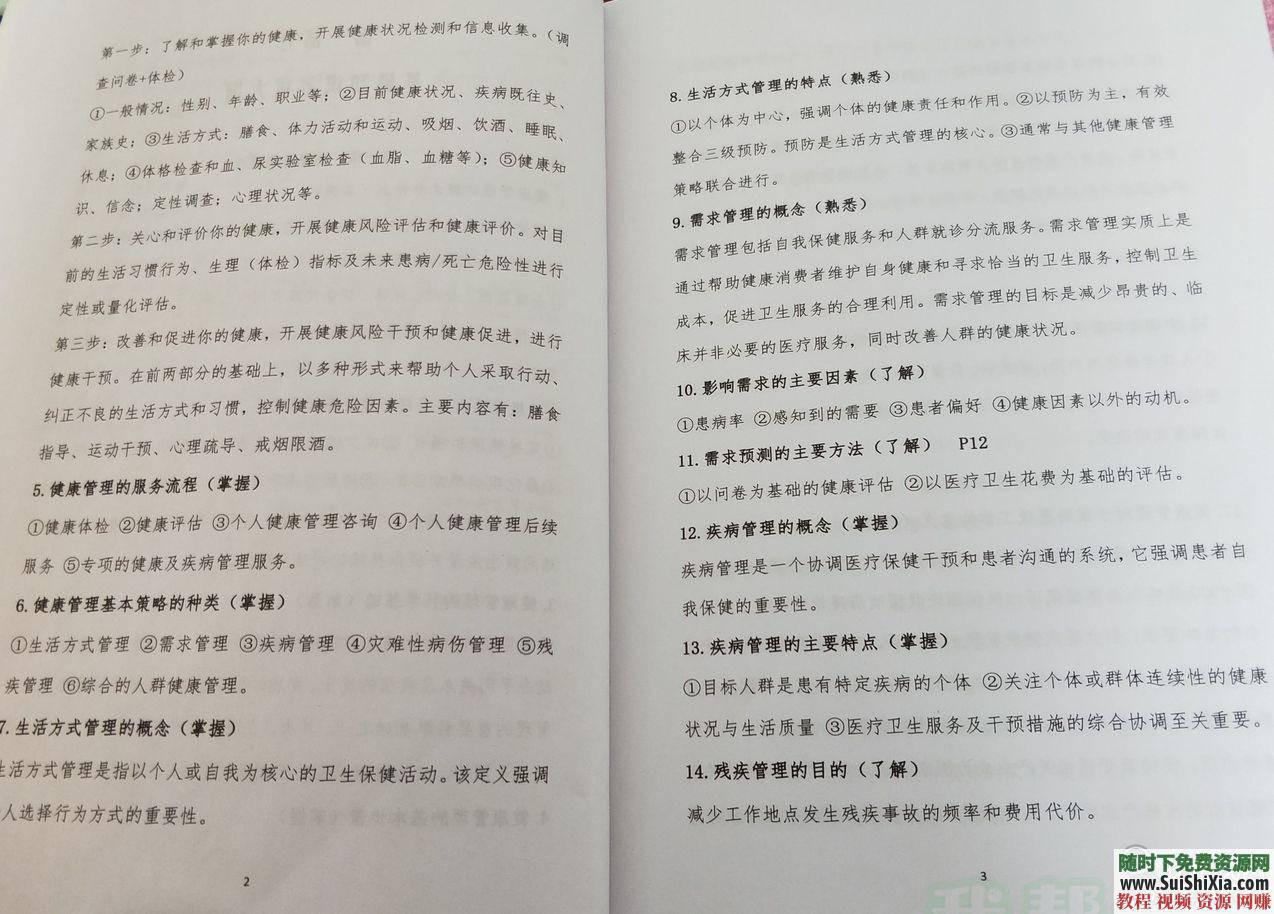 第一步：了解和掌握你的健康，开展健康状况检测和信息收集。（调
查问卷+体检）
①一般情况：性别、年龄、职业等；②目前健康状况、疾病既往史、
家族史；③生活方式：膳食、体力活动和运动、吸烟、饮酒、睡眠、
休息；④体格检查和血、尿实验室检查（血脂、血糖等）；⑤健康知
识、信念；定性调查；心理状况等。
第二步：关心和评价你的健康，开展健康风险评估和健康评价。对目
前的生活习惯行为、生理（体检）指标及未来患病/死亡危险性进行
定性或量化评估。
第三步：改善和促进你的健康，开展健康风险干预和健康促进，进行
健康干预。在前两部分的基础上，以多种形式来帮助个人采取行动、
纠正不良的生活方式和习惯，控制健康危险因素。主要内容有：膳食
指导、运动干预、心理疏导、戒烟限酒。
5.健康管理的服务流程（掌握）
①健康体检 ②健康评估 ③个人健康管理咨询 ④个人健康管理后续
服务 ⑤专项的健康及疾病管理服务。
6.健康管理基本策略的种类（掌握）
①生活方式管理 ②需求管理 ③疾病管理 ④灾难性病伤管理 ⑤残
疾管理 ⑥综合的人群健康管理。
7.生活方式管理的概念（掌握）
生活方式管理是指以个人或自我为核心的卫生保健活动。该定义强调
人选择行为方式的重要性。
2
8.生活方式管理的特点（熟悉）
①以个体为中心，强调个体的健康责任和作用。②以预防为主，有效
整合三级预防。预防是生活方式管理的核心。③通常与其他健康管理
策略联合进行。
9.需求管理的概念（熟悉）
需求管理包括自我保健服务和人群就诊分流服务。需求管理实质上是
通过帮助健康消费者维护自身健康和寻求恰当的卫生服务，控制卫生
成本，促进卫生服务的合理利用。需求管理的目标是减少昂贵的、临
床并非必要的医疗服务，同时改善人群的健康状况。
10.影响需求的主要因素（了解）
①患病率 ②感知到的需要 ③患者偏好 ④健康因素以外的动机。
11.需求预测的主要方法（了解） P12
①以问卷为基础的健康评估 ②以医疗卫生花费为基础的评估。
12.疾病管理的概念（掌握）
疾病管理是一个协调医疗保健干预和患者沟通的系统，它强调患者自
我保健的重要性。
13.疾病管理的主要特点（掌握）
①目标人群是患有特定疾病的个体 ②关注个体或群体连续性的健康
状况与生活质量 ③医疗卫生服务及干预措施的综合协调至关重要。
14.残疾管理的目的（了解）
减少工作地点发生残疾事故的频率和费用代价。
3
随时下免费资源网
www.SuiShiXia.com
教程 视频 资源 网赚